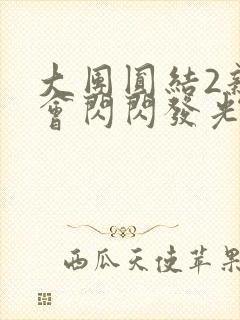 大團圓結2
會閃閃發光
西瓜天使苹果